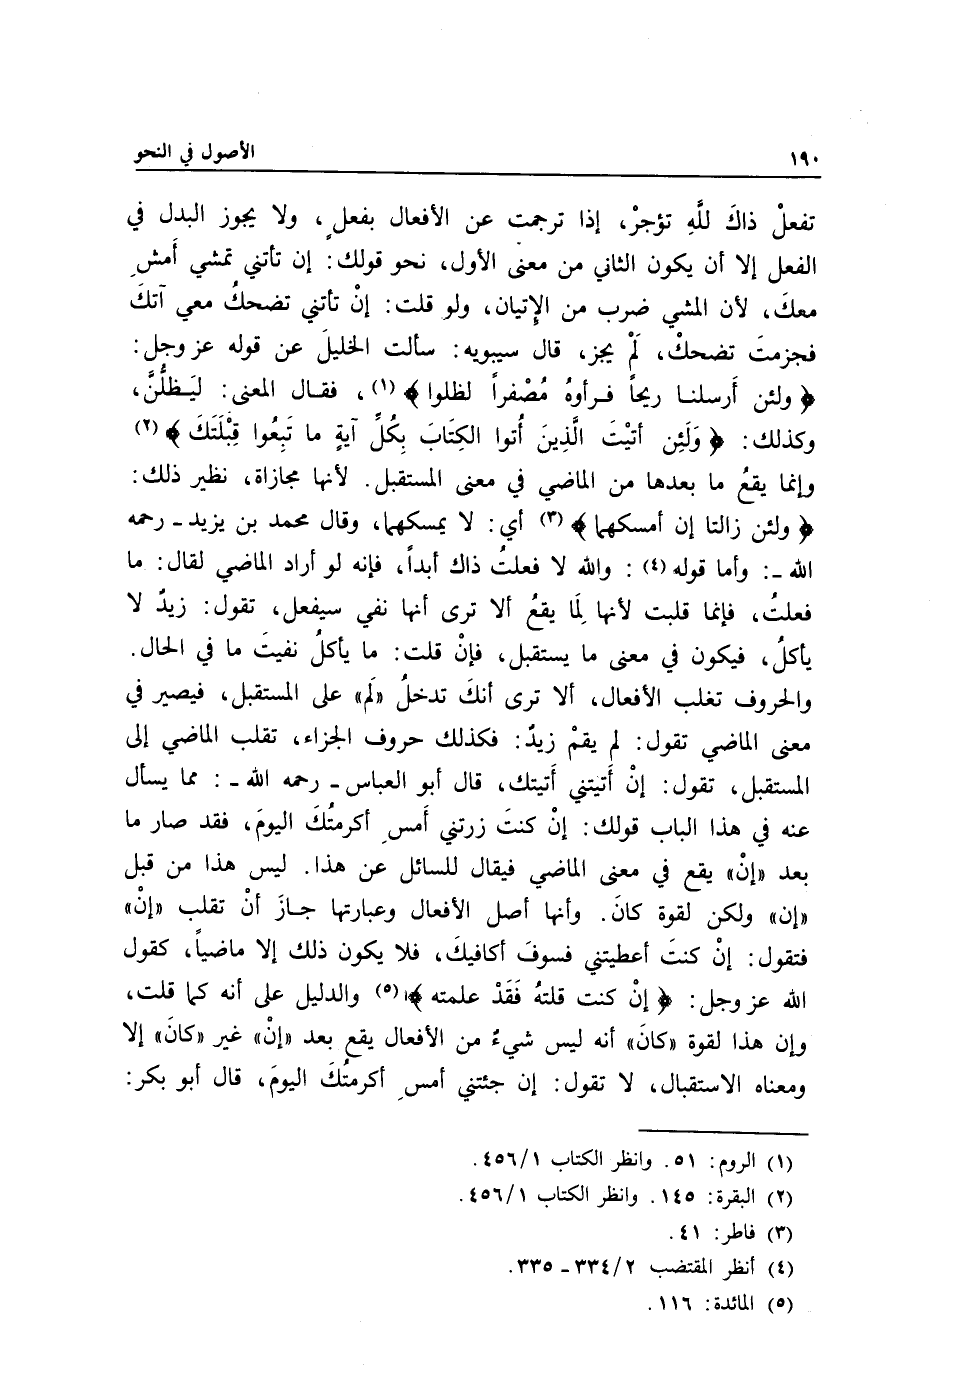 ١٩٠ الأصول في النحو
تفعلْ ذاكَ للَّهِ تؤجرْ، إذا ترجمت عن الأفعال بفعلٍ، ولا يجوز البدل في
الفعل إلا أن يكون الثاني من معنى الأول، نحو قولك: إن تأتني تمشي أَمشِ
معكَ، لأن المشي ضرب من الإِتيان، ولو قلت: إنْ تأتني تضحكُ معي آتكَ
فجزمتَ تضحكْ، لَمْ يجز، قال سيبويه: سألت الخليلَ عن قوله عز وجل:
﴿ ولئن أَرسلنـا ريحاً فـرأوهُ مُصْفراً لظلوا ﴾ (١)، فقـال المعنى: ليَـظلُّنَّ،
وكذلك: ﴿ وَلَئِن أتيْتَ الَّذِينَ أُتوا الكِتَابَ بِكُلِّ آيةٍ ما تَبِعُوا قِبْلَتَكَ ﴾ (٢)
وإنما يقعُ ما بعدها من الماضي في معنى المستقبل. لأنها مجازاة، نظير ذلك:
﴿ ولئن زالتا إن أمسكهما ﴾ (٣) أي: لا يمسكهما، وقال محمد بن يزيد ـ رحمه
الله ـ: وأما قوله (٤) : والله لا فعلتُ ذاك أبداً، فإنه لو أراد الماضي لقال: ما
فعلتُ، فإنما قلبت لأنها لِمَا يقعُ ألا ترى أنها نفي سيفعل، تقول: زيدٌ لا
يأكلُ، فيكون في معنى ما يستقبل، فإنْ قلت: ما يأكلُ نفيتَ ما في الحال.
والحروف تغلب الأفعال، ألا ترى أنكَ تدخلُ «لَم» على المستقبل، فيصير في
معنى الماضي تقول: لم يقمْ زيدٌ: فكذلك حروف الجزاء، تقلب الماضي إلى
المستقبل، تقول: إنْ أَتيتني أَتيتك، قال أبو العباس ـ رحمه الله ـ : مما يسأل
عنه في هذا الباب قولك: إنْ كنتَ زرتني أَمسِ أكرمتُكَ اليومَ، فقد صار ما
بعد «إنْ» يقع في معنى الماضي فيقال للسائل عن هذا. ليس هذا من قبل
«إن» ولكن لقوة كانَ. وأنها أصل الأفعال وعبارتها جـازَ أنْ تقلب «إنْ»
فتقول: إنْ كنتَ أعطيتني فسوفَ أكافيكَ، فلا يكون ذلك إلا ماضياً، كقول
الله عز وجل: ﴿ إنْ كنت قلتهُ فَقَدْ علمته ﴾ (٥) والدليل على أنه كما قلت،
وإن هذا لقوة «كانَ» أنه ليس شيءٌ من الأفعال يقع بعد «إنْ» غير «كانَ» إلا
ومعناه الاستقبال، لا تقول: إن جئتني أمسِ أكرمتُكَ اليومَ، قال أبو بكر:
(١) الروم: ٥١. وانظر الكتاب ٤٥٦/١.
(٢) البقرة: ١٤٥. وانظر الكتاب ٤٥٦/١.
(٣) فاطر: ٤١.
(٤) أنظر المقتضب ٣٣٤/٢ ـ ٣٣٥.
(٥) المائدة: ١١٦.